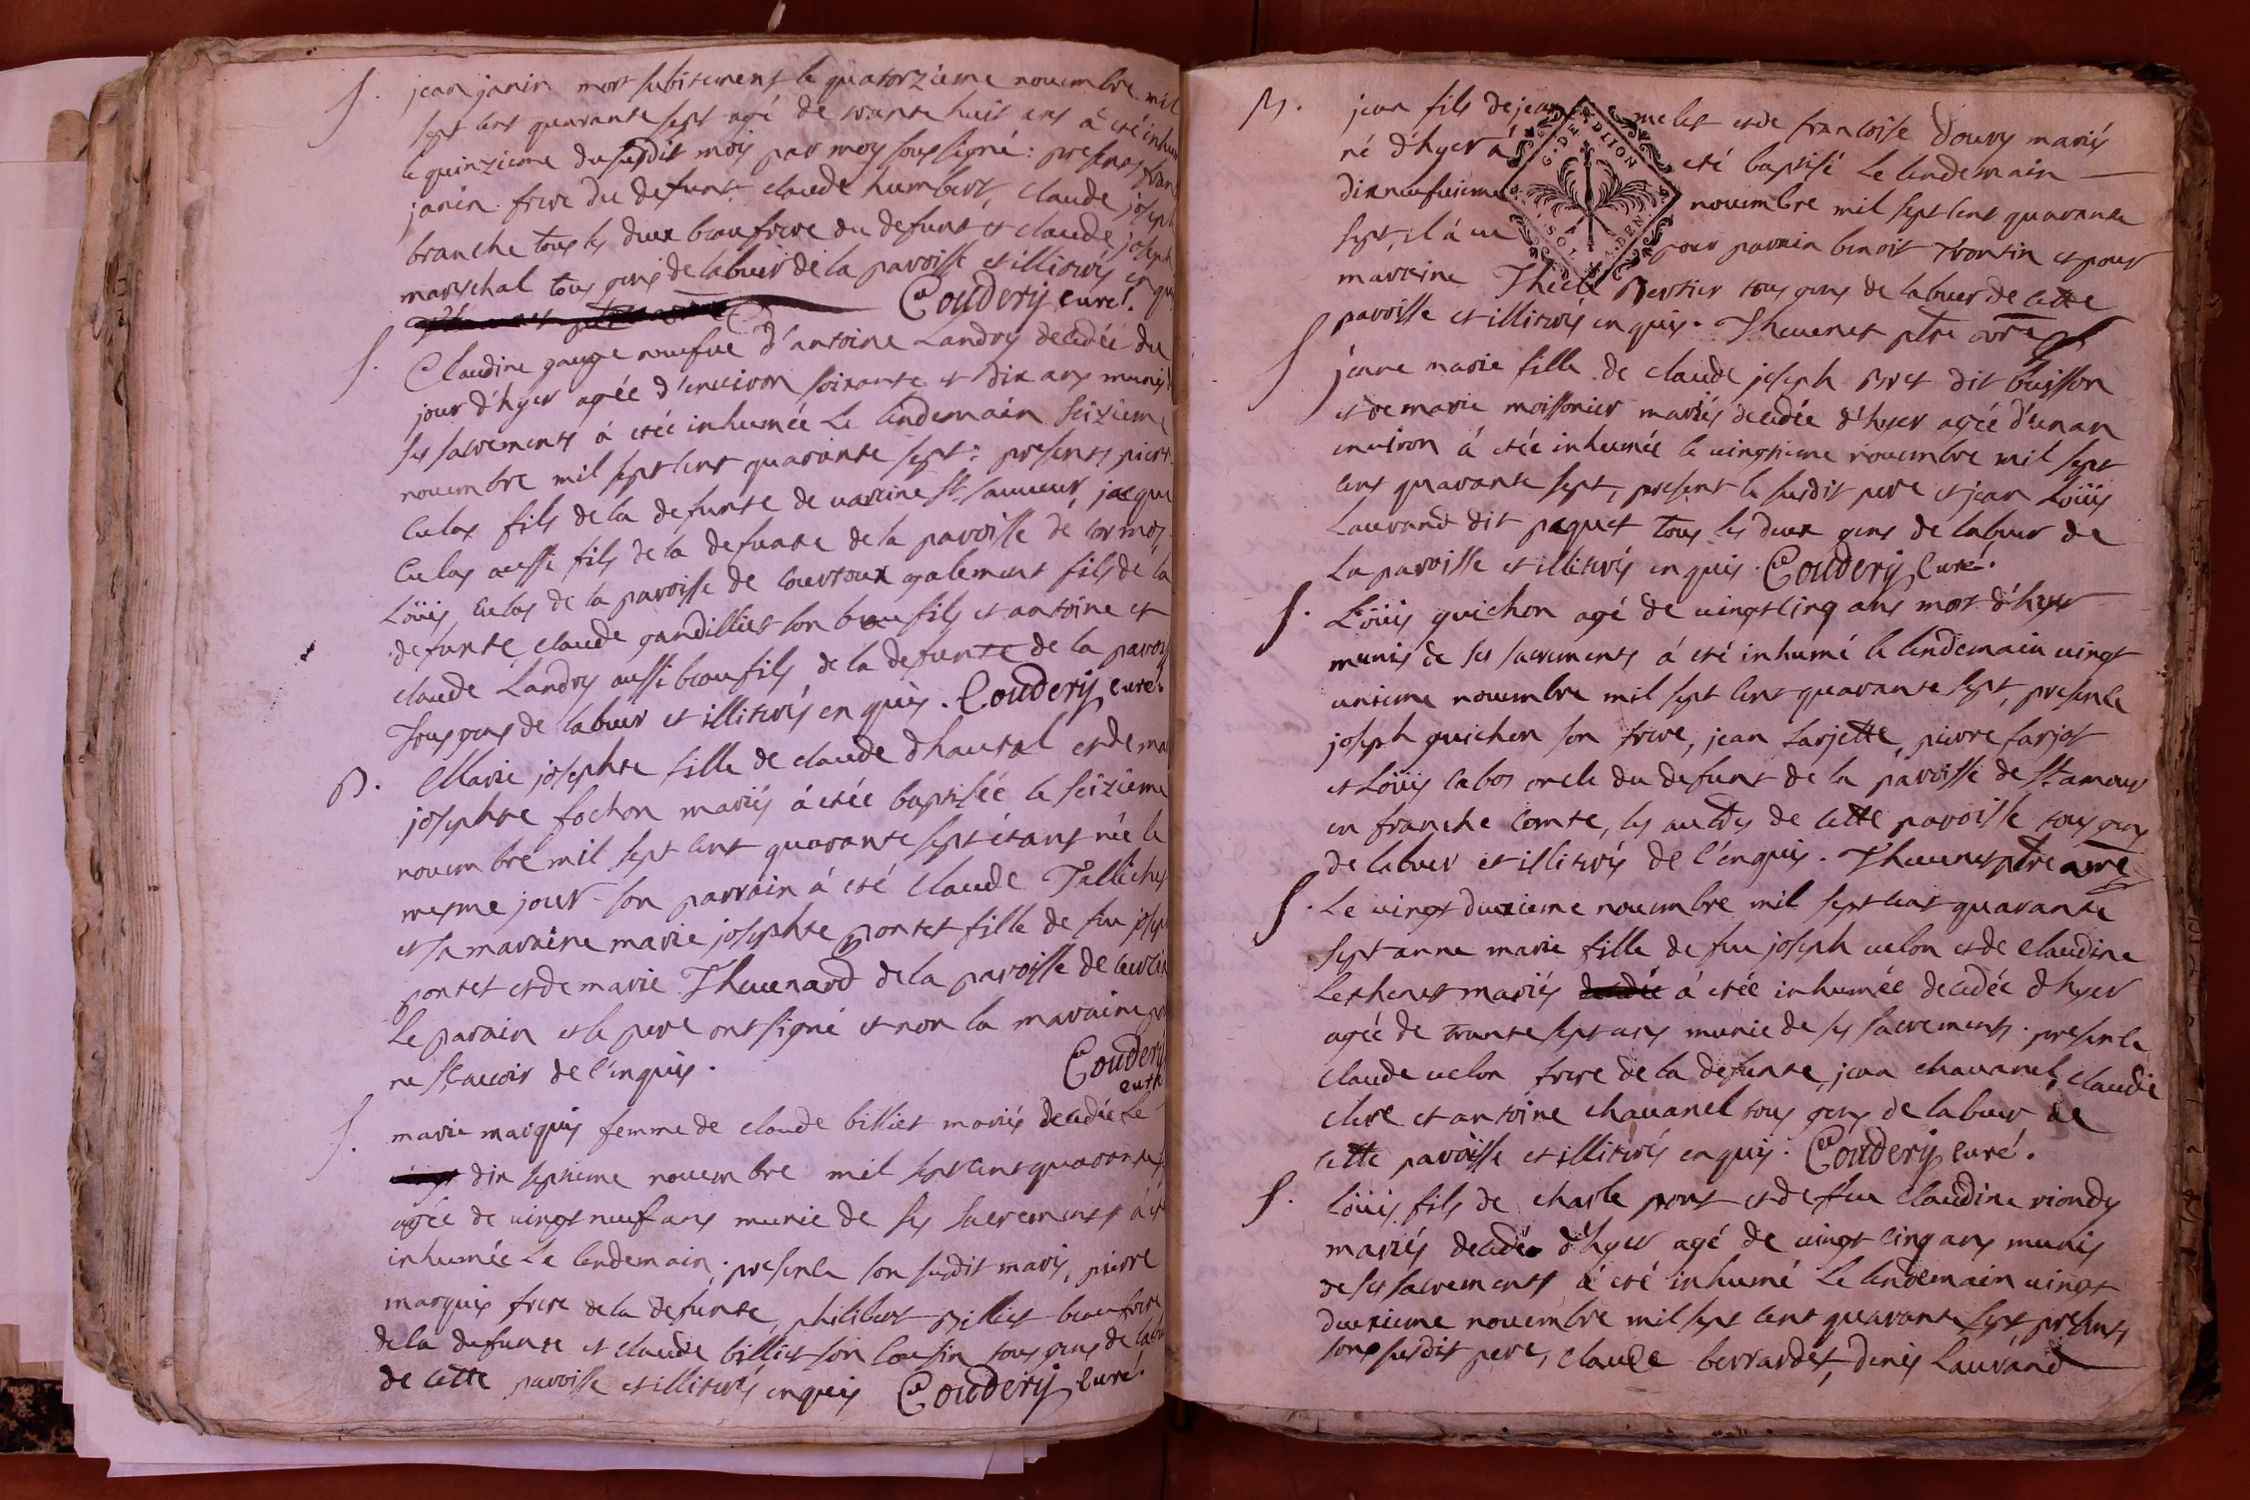 S. jean janin mort subitement le quatorzieme novembre mil
sept cent quarante sept agé de trante huit ans á eté inhum
le quinzieme du susdit mois par moy soussigné: presents fran
janin frere du defunt claude humbert, claude joseph
branche tous les deux beaufrere du defunt et claude joseph
mareschal tous gens de labeur de la paroisse et illiterés en quis
Coudery curé.
S. Claudine gauge veufve d'antoine Landry decedée du
jour d'hyer agée d'environ soixante et dix ans munis d
ses sacrements á etée inhumée Le lendemain seizieme
novembre mil sept cent quarante sept: presents pierre
Culas fils de la defunte de vareine St sauveur, jacque
Culas aussi fils de la defunte de la paroisse de cormoz
Loüis Culas de la paroisse de courtoux egalement fils de la
defunte claude gandilliet son beaufils et antoine et
claude Landry aussi beaufils de la defunte de la paroi
Tous gens de labeur et illiterés en quis. Coudery curé.
B. Marie josephte fille de claude dhautal et de ma
josephte fochon mariés á etée baptisée le seizieme
novembre mil sept cent quarante sept étant née le
mesme jour son parrain á eté Claude Tallichet
et sa maraine marie josephte pontet fille de feu joseph
pontet et de marie Thevenard de la paroisse de curcia
Le parain et le pere ont signé et non la maraine po
ne scavoir de l'enquis.
Coudery
curé
S. marie marquis femme de claude billiet mariés decedée le
dix septieme novembre mil sept cent quarante s
agée de vingt neuf ans munie de ses sacrements á et
inhumée Le lendemain; presents son susdit maris, pierre
marquis frere de la defunte, philibert Billiet beaufrere
de la defunte et claude billiet son cousin tous gens de labeu
de cette paroisse et illiterés enquis Coudery curé.
B. jean fils de jean melet et de francoise d'oury mariés
né d'hyer á eté baptisé Le lendemain
dixneufvieme novembre mil sept cent quarante
sept, il á eu pour parain benoit trontin et pour
maraine Thecle Bertier tous gens de labeur de cette
paroisse et illiterés enquis. Thevenet ptre
G. DE DIION
SOL DEN.
S jeane marie fille de claude joseph Bret dit buisson
et de marie moissonier mariés decedée d'hyer agée d'un an
environ á etée inhumée le vingtieme novembre mil sept
cent quarante sept, present le susdit pere et jean Loüis
Laurand dit paquet tous les deux gens de labeur de
La paroisse et illiterés enquis. Coudery curé.
S. Loüis guichon agé de vingt cinq ans mort d'hyer
munis de ses sacrements á eté inhumé le lendemain vingt
unieme novembre mil sept cent quarante sept, presents
joseph guichon son frere, jean farjette, pierre farjot
et Loüis cabos oncle du defunt de la paroisse de St amour
en franche comte, les autres de cette paroisse tous gens
de labeur et illiterés de l'enquis. Thevenet ptre
S. Le vingt deuxieme novembre mil sept cent quarante
sept anne marie fille de feu joseph velon et de claudine
Lethenet mariés á etée inhumée decedée d'hyer
agée de trante sept ans munie de ses sacrements. presents
claude velon frere de la defunte, jean chavanel, claude
clere et antoine chavanel tous gens de labeur de
cette paroisse et illiterés enquis. Coudery curé.
S. Loüis fils de charle pont et de feu claudine riondy
mariés decedé d'hyer agé de vingt cinq ans munis
de ses sacrements á eté inhumé Le lendemain vingt
deuxieme novembre mil sept cent quarante sept presents
son susdit pere, claude berrardet, denis Laurand